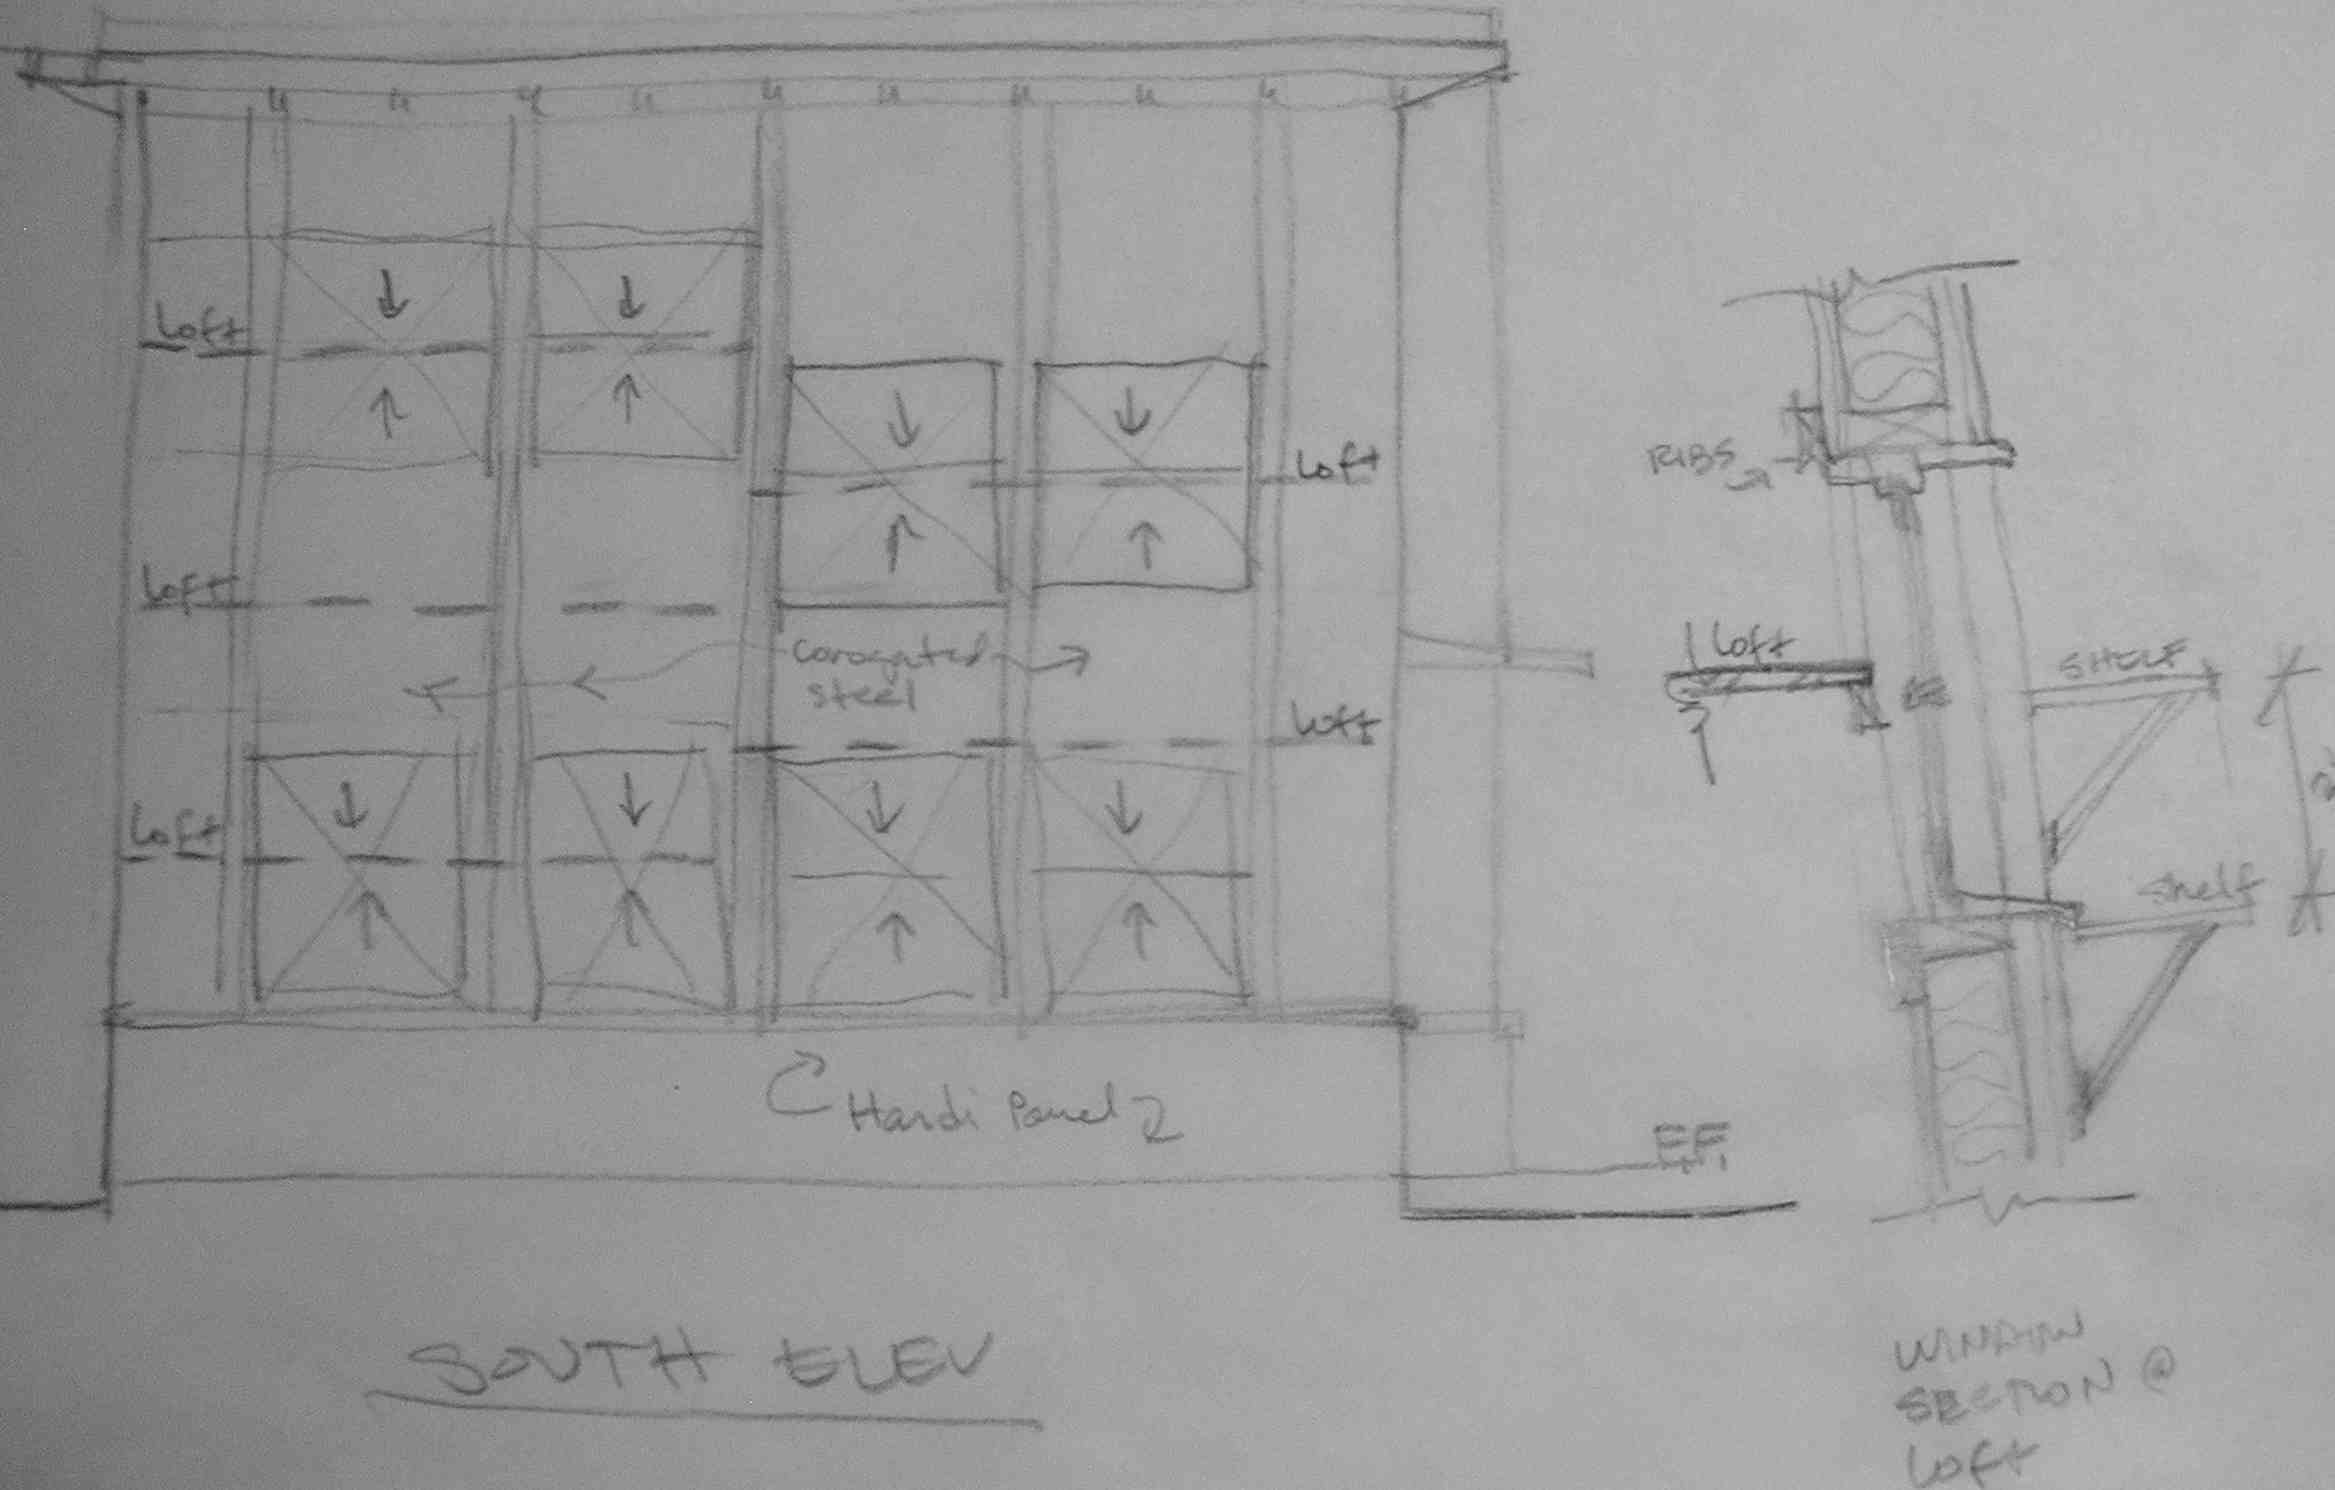 Loft
Loft
Loft
Loft
Loft
corogated
steel
Hardi Panel
F.F.
SOUTH ELEV
RIBS
Loft
SHELF
Shelf
WINDOW
SECTION @
Loft